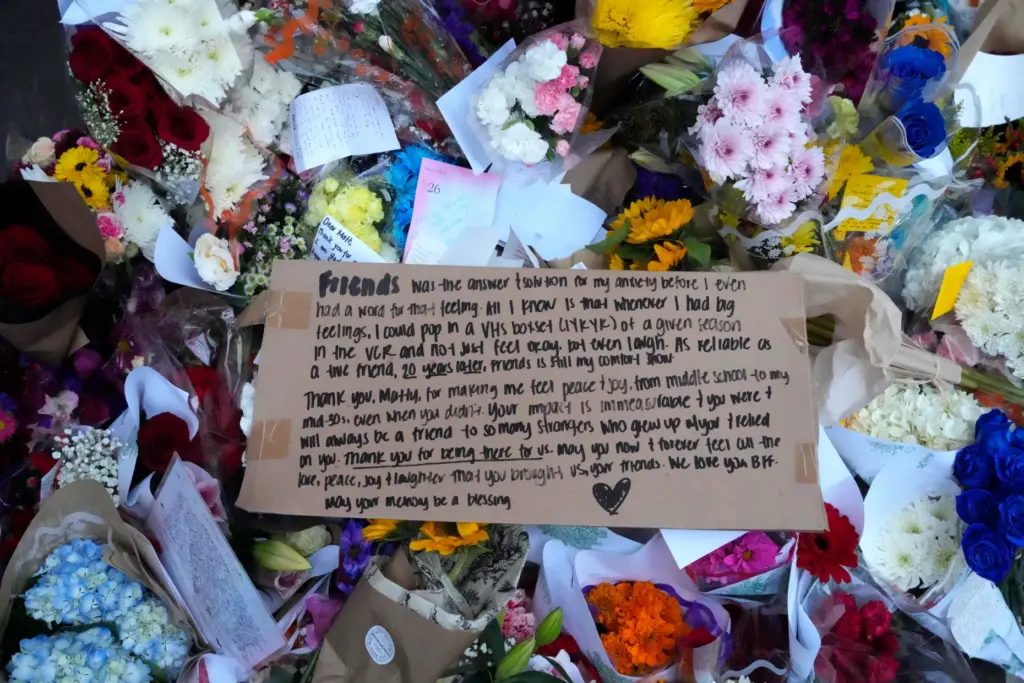 26
Dear Matt
Thank you for
Friends was the answer + solution for my anxiety before I even
had a word for that feeling. All I know is that whenever I had big
feelings, I could pop in a VHS boxset (IYKYK) of a given season
in the VCR and not just feel okay, but even laugh. As reliable as
a true friend, 20 years later, Friends is still my comfort show.
Thank you, Matty, for making me feel peace + joy, from middle school to my
mid-30s, even when you didn't. Your impact is immeasurable + you were +
will always be a friend to so many strangers who grew up w/ you + relied
on you. Thank you for being there for us. May you now + forever feel all the
love, peace, joy + laughter that you brought us, your friends. We love you BFF.
May your memory be a blessing